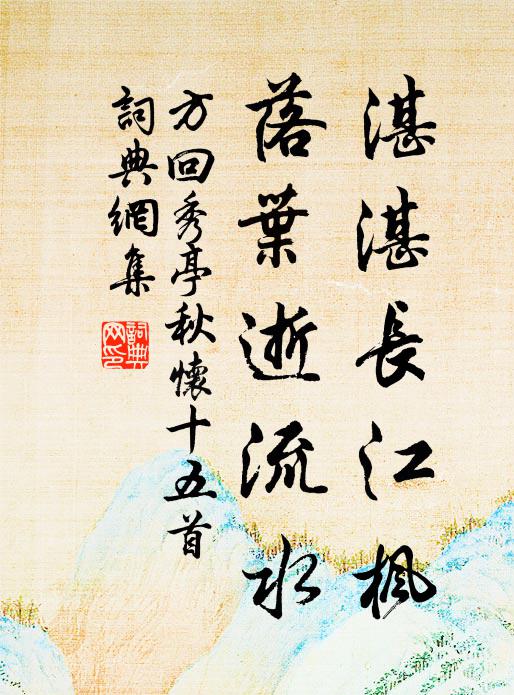 湛湛長江楓
落葉逝流水
方回秀亭秋懷十五首
詞典網集
詞典網印